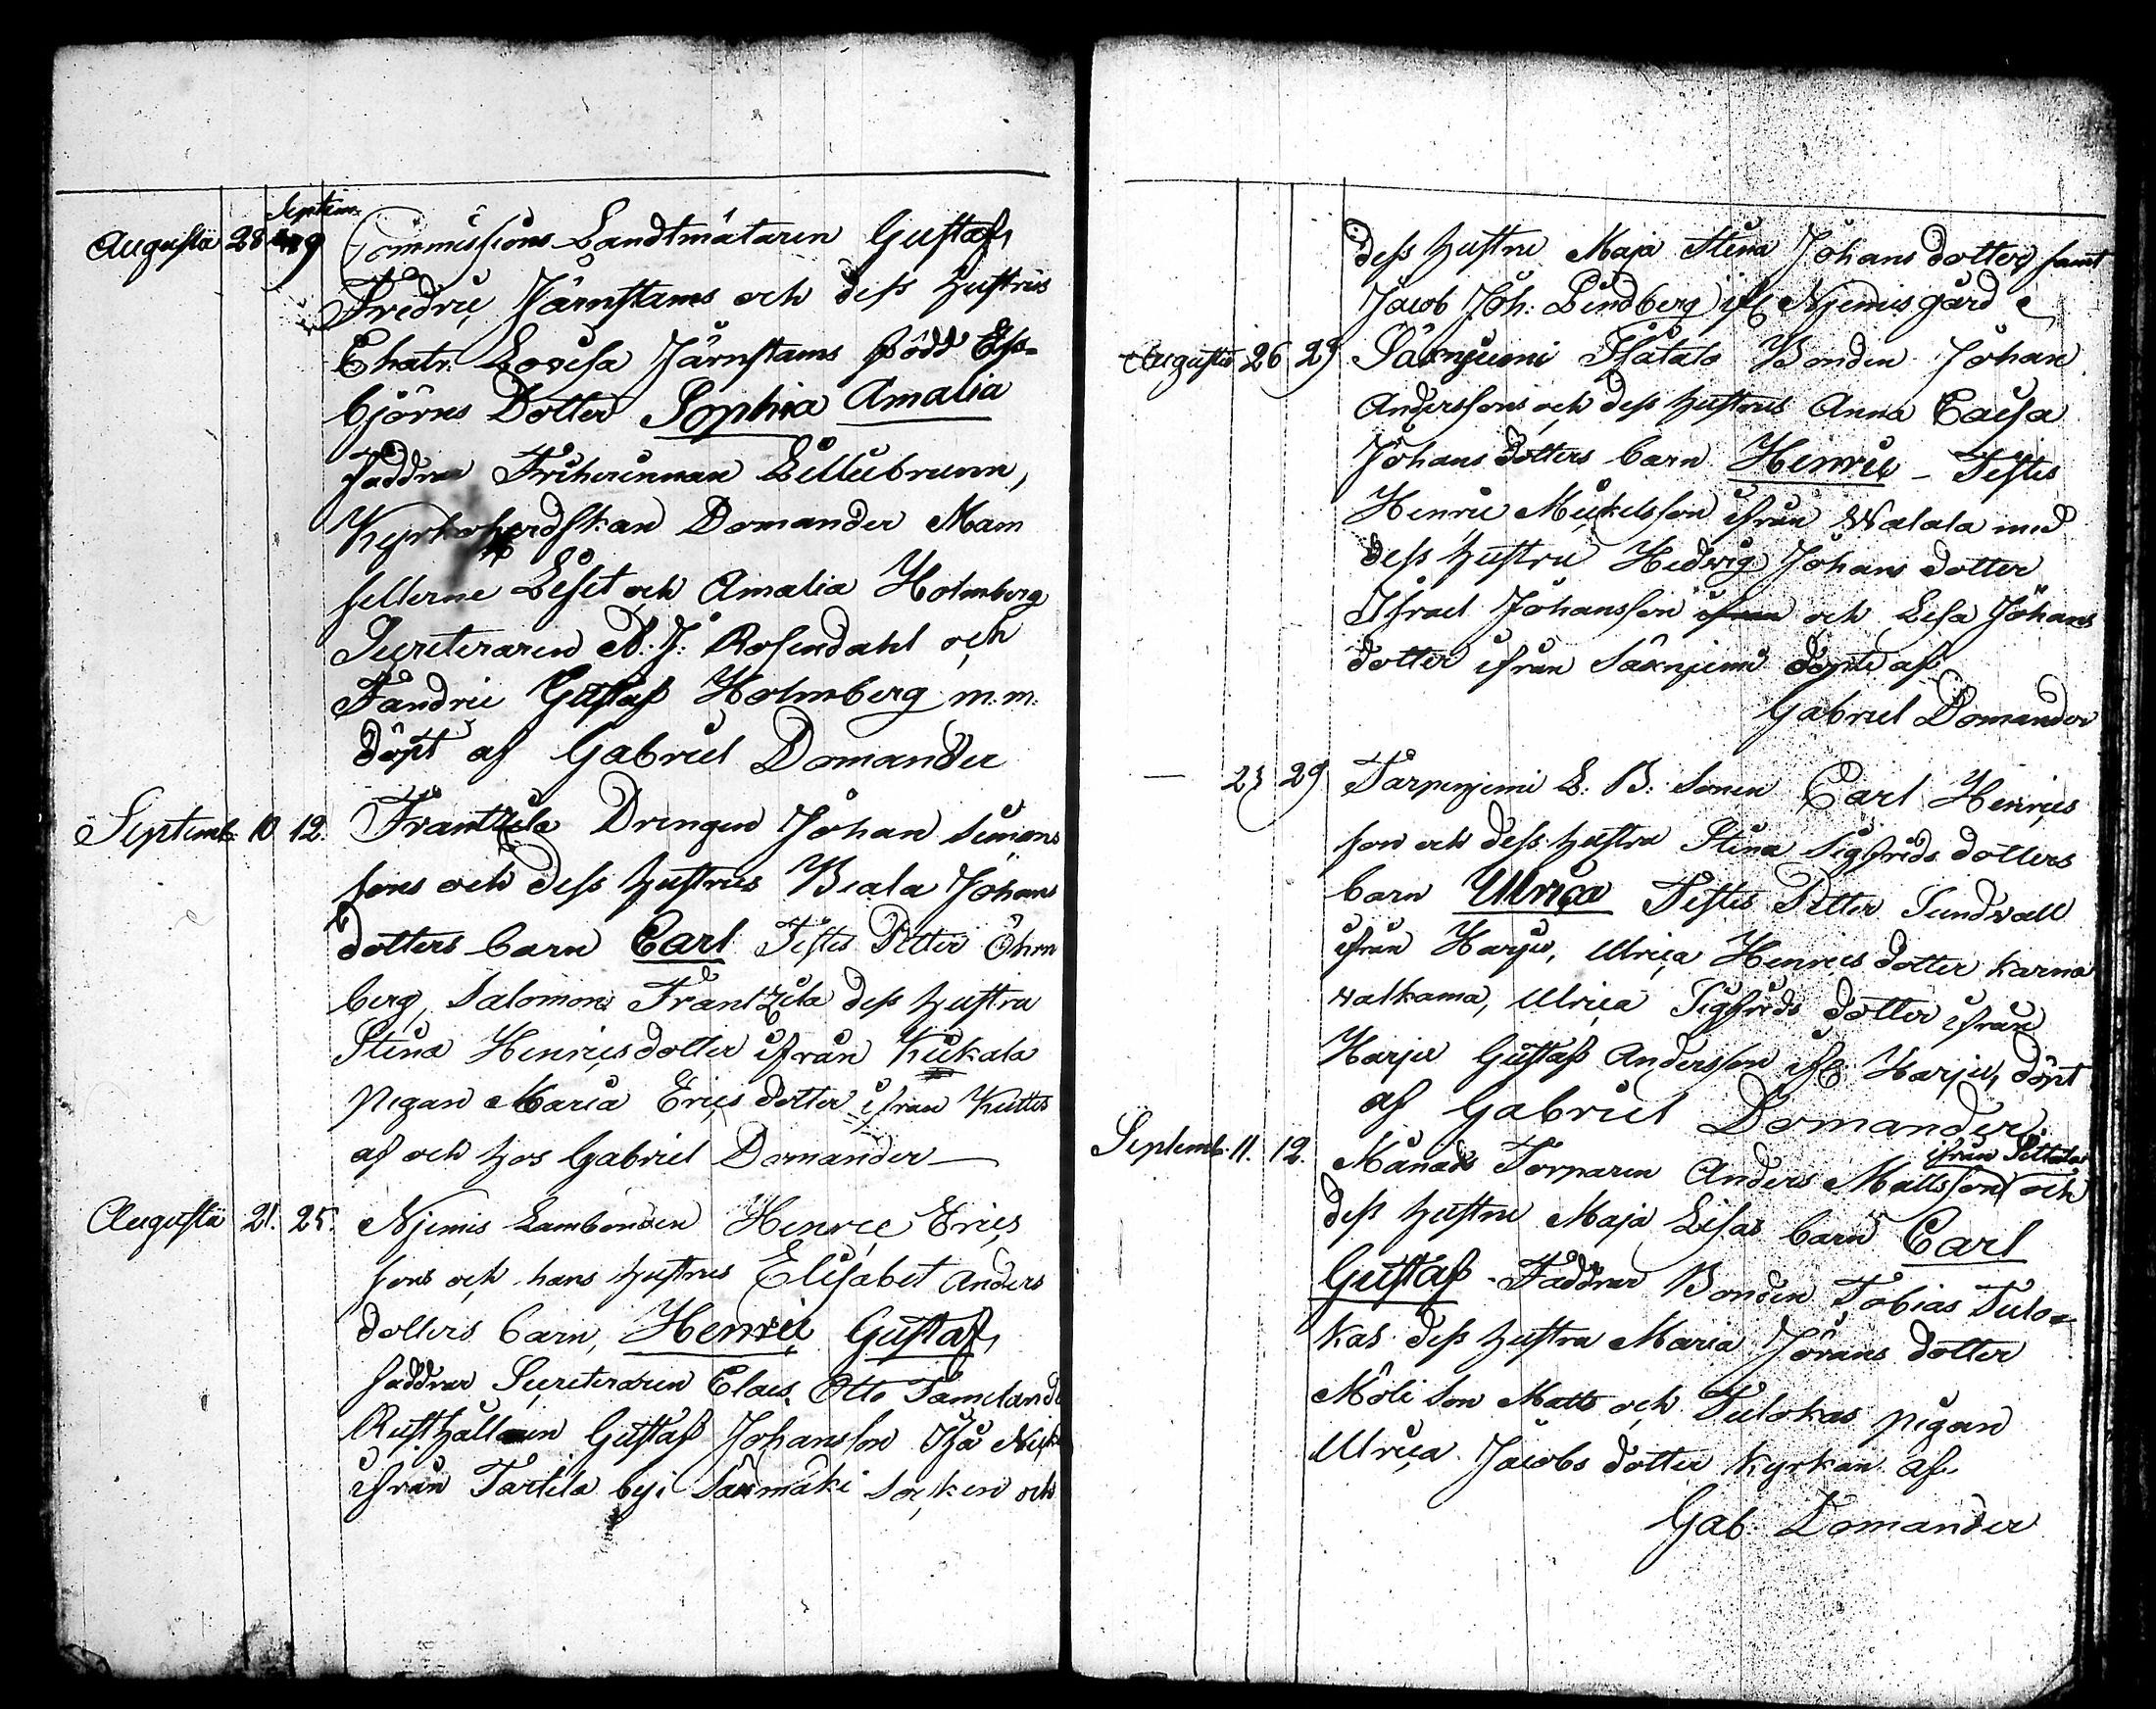 Septem.
Augustii 28 9 Commissions Landtmätaren Gustaf
Fredric Järnstams och dess hustrus
Chatr. Lovisa Järnstams född Ehs-
björns Dotter Sophia Amalia
faddrar Friherinnan Lilliebrunn,
Kyrkoherdskan Domander Mam
sellerne Liset och Amalia Holmberg
Secreteraren A. J. Rosendahl och
Fändric Gustaf Holmberg m.m.
döpt af Gabriel Domander
Septemb. 10 12. Frantzila Drengen Johan Simons
sons och dess hustrus Beata Johans
dotters barn Carl Testes Petter Öhrn
berg, Salomon Frantzila dess hustru
Stina Henricsdotter ifrån Kukala
pigan Maria Erics dotter ifrån Kuttis
af och hos Gabriel Domander
Augustii 21. 25. Njemis Lambonden Henric Erics
sons och hans hustrus Elisabet Anders
dotters barn, Henric Gustaf,
faddrar Secreteraren Claes Otto Tamelander
Rusthållaren Gustaf Johansson
ifrån Tartila by i Säxmäki socken och
dess hustru Maja Stina Johans dotter, samt
Jacob Joh: Lindberg ifr. Njemis gård
Augustii 26 29 Säxnjemi Bonden Johan
Anderssons och dess hustrus Anna Caisa
Johans dotters barn Henric - Testes
Henric Mickelsson ifrån Walala med
dess hustru Hedvig Johans dotter
Israel Johansson och Lisa Johans
dotter ifrån Säxnjemi döpte af
Gabriel Domander
— 23 29 Tarpenjemi L: B: Sonen Carl Henrics
son och dess hustru Stina Sigfrids dotters
barn Ulrica Testes Petter Sundvall
ifrån Harju, Ulrica Henrics dotter Karna
walkama, Ulrica Sigfrids dotter ifrån
Harju Gustaf Andersson ifr. Harju, döpt
af Gabriel Domander
ifrån
Septemb. 11. 12. Månads Torparen Anders Mattsson och
dess hustru Maja Lisas barn Carl
Gustaf - Faddrar Bonden Tobias Tulo-
kas dess hustru Maria Jörans dotter
Möli Son Matts och Tulokas pigan
Ulrica Jacobs dotter Kyrkan af
Gab. Domander